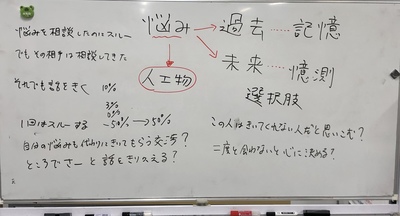 悩みを相談したのにスルー
でもその相手は相談してきた
それでも話をきく 10%
3%
0.9%
1回はスルーする →50% → 50%
自分の悩みも代わりにきいてもらう交渉?
ところでさーと話をきりかえる?
悩み→過去……記憶
未来……憶測
選択肢
人工物
この人はきいてくれない人だと思いこむ?
二度と会わないと心に決める?